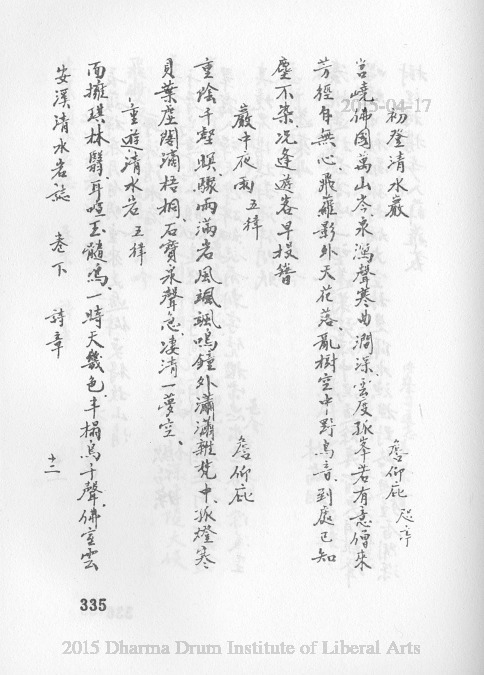 初登清水巖
詹仰庇
岧嶢佛国萬山岑泉瀉聲寒曲澗深雲度孤峯若有意僧來
芳徑自無心飛蘿影外天花落亂樹空中野鳥音到處已知
塵不染况逢遊客早投簪
巖中夜雨 五律
詹仰庇
重陰千壑暝驟雨滿岩風颯颯鳴鐘外瀟瀟雜梵中孤燈寒
貝葉虛閣滴梧桐石竇泉聲急凄清一夢空
重遊清水岩 五律
面擁琪林翳耳喧玉髓鳴一時天幾色半榻鳥千聲佛室雲
安溪清水岩誌 卷下 詩章 十二
335
2015-04-17
2015 Dharma Drum Institute of Liberal Arts